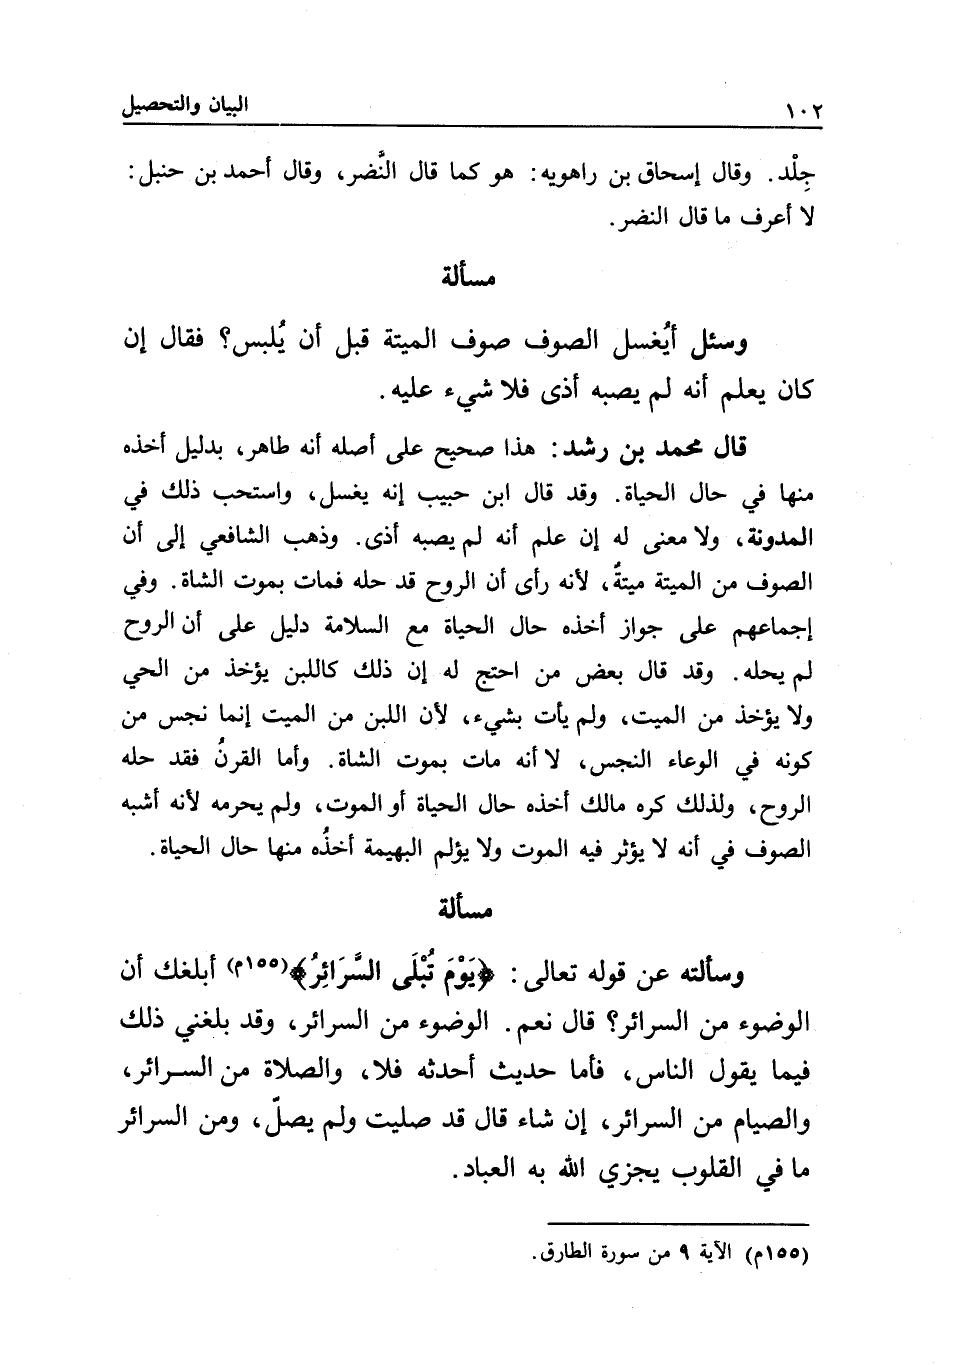 ١٠٢ البيان والتحصيل
جِلْد. وقال إسحاق بن راهويه: هو كما قال النَّضر، وقال أحمد بن حنبل:
لا أعرف ما قال النضر.
مسألة
وسئل أيُغسل الصوف صوف الميتة قبل أن يُلبس؟ فقال إن
كان يعلم أنه لم يصبه أذى فلا شيء عليه.
قال محمد بن رشد: هذا صحيح على أصله أنه طاهر، بدليل أخذه
منها في حال الحياة. وقد قال ابن حبيب إنه يغسل، واستحب ذلك في
المدونة، ولا معنى له إن علم أنه لم يصبه أذى. وذهب الشافعي إلى أن
الصوف من الميتة ميتةٌ، لأنه رأى أن الروح قد حله فمات بموت الشاة. وفي
إجماعهم على جواز أخذه حال الحياة مع السلامة دليل على أن الروح
لم يحله. وقد قال بعض من احتج له إن ذلك كاللبن يؤخذ من الحي
ولا يؤخذ من الميت، ولم يأت بشيء، لأن اللبن من الميت إنما نجس من
كونه في الوعاء النجس، لا أنه مات بموت الشاة. وأما القرنُ فقد حله
الروح، ولذلك كره مالك أخذه حال الحياة أو الموت، ولم يحرمه لأنه أشبه
الصوف في أنه لا يؤثر فيه الموت ولا يؤلم البهيمة أخذُه منها حال الحياة.
مسألة
وسألته عن قوله تعالى: ﴿يَوْمَ تُبْلَى السَّرَائِرُ﴾(١٥٥م) أبلغك أن
الوضوء من السرائر؟ قال نعم. الوضوء من السرائر، وقد بلغني ذلك
فيما يقول الناس، فأما حديث أحدثه فلا، والصلاة من السرائر،
والصيام من السرائر، إن شاء قال قد صليت ولم يصلّ، ومن السرائر
ما في القلوب يجزي الله به العباد.
(١٥٥م) الآية ٩ من سورة الطارق.